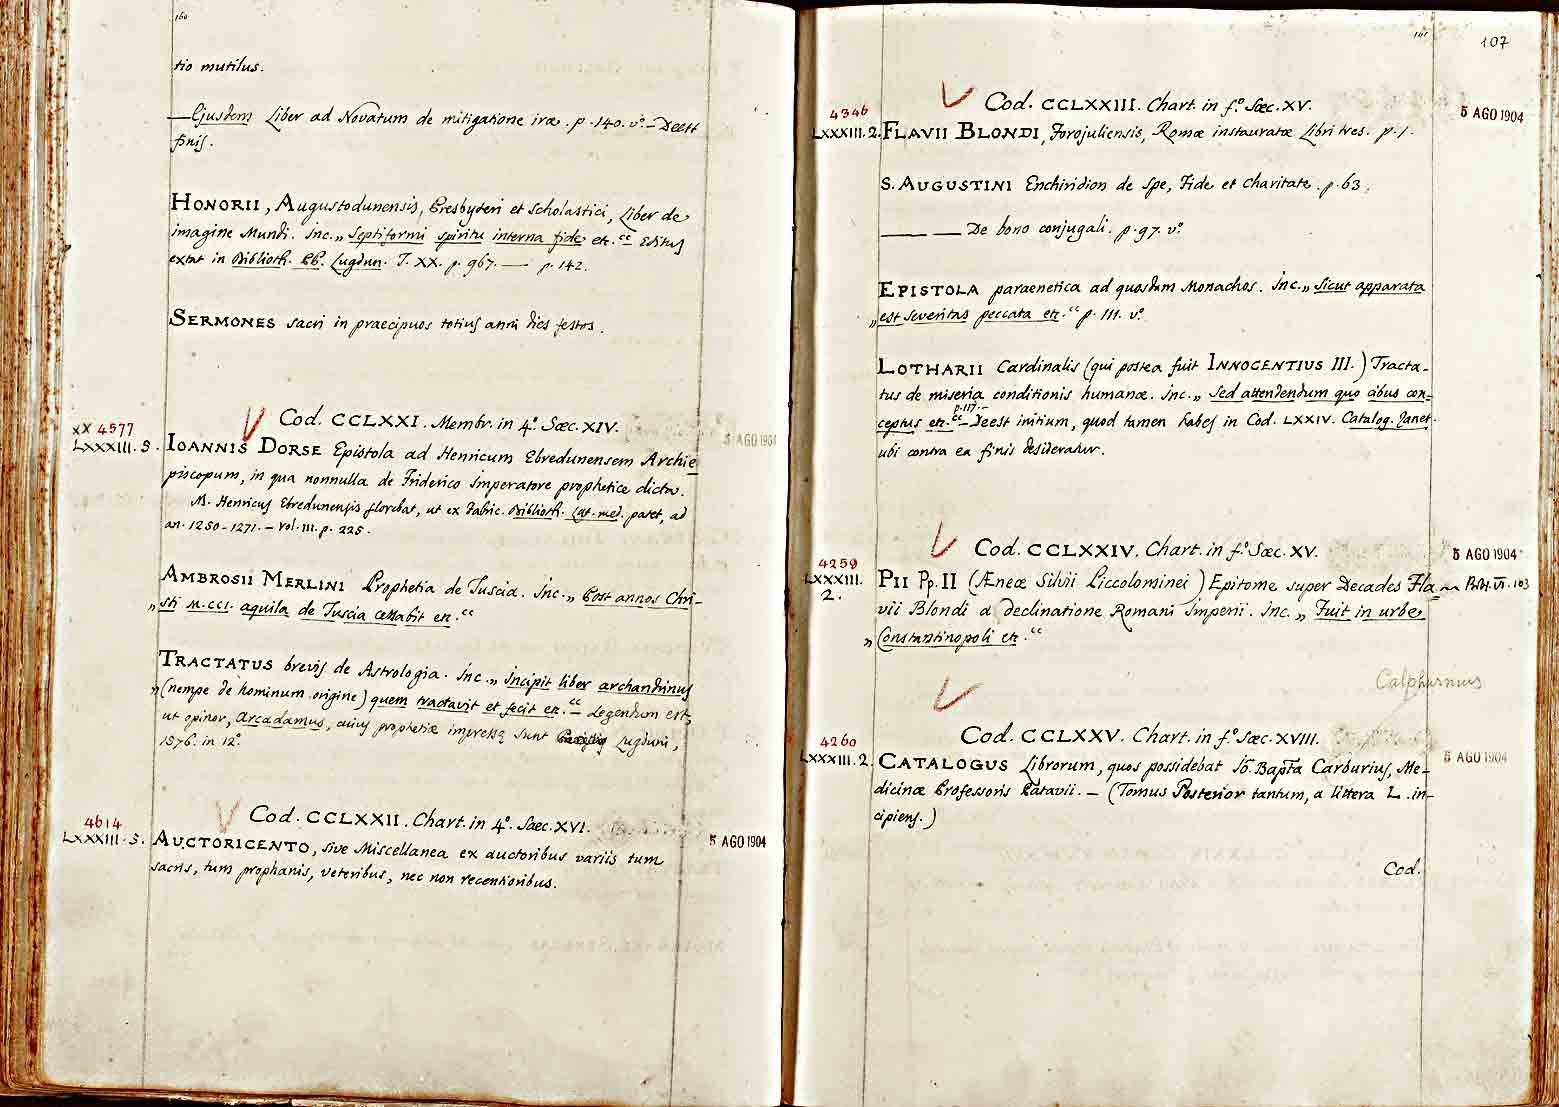 160
tio mutilus.
— Ejusdem Liber ad Novatum de mitigatione iræ. p. 140. v.º — Deest
finis.
HONORII, Augustodunensis, Presbyteri et Scholastici, Liber de
imagine Mundi. Inc. „ Septiformi spiritu interna fide etc.“ Editus
extat in Biblioth. PP. Lugdun. T. XX. p. 967. — p. 142.
SERMONES sacri in praecipuos totius anni dies festos.
XX 4577
LXXXIII. 5.
Cod. CCLXXI. Membr. in 4.º Sæc. XIV.
5 AGO 1904
IOANNIS DORSE Epistola ad Henricum Ebredunensem Archie
piscopum, in qua nonnulla de Friderico Imperatore prophetice dicta.
N. Henricus Ebredunensis florebat, ut ex Fabric. Biblioth. Lat. med. patet, ad
an. 1250-1271. — vol. III. p. 225.
AMBROSII MERLINI Prophetia de Tuscia. Inc. „ Post annos Chri-
„ sti M.CCI. aquila de Tuscia cessabit etc.“
TRACTATUS brevis de Astrologia. Inc. „ Incipit liber archandinus
„ (nempe de hominum origine) quem tractavit et fecit etc.“ — Legendum est,
ut opinor, Arcadamus, cuius prophetiæ impressæ sunt Lugduni,
1576. in 12.º
4614
LXXXIII. 5.
Cod. CCLXXII. Chart. in 4.º Saec. XVI.
5 AGO 1904
AUCTORICENTO, sive Miscellanea ex auctoribus variis tum
sacris, tum prophanis, veteribus, nec non recentioribus.
161
107
4346
LXXXIII. 2.
Cod. CCLXXIII. Chart. in f.º Sæc. XV.
5 AGO 1904
FLAVII BLONDI, Forojuliensis, Romæ instauratæ Libri tres. p. 1.
S. AUGUSTINI Enchiridion de Spe, Fide et Charitate. p. 63.
—— — De bono conjugali. p. 97. v.º
EPISTOLA paraenetica ad quosdam Monachos. Inc. „ Sicut apparata
„ est severitas peccata etc.“ p. 111. v.º
LOTHARII Cardinalis (qui postea fuit INNOCENTIUS III.) Tracta-
tus de miseria conditionis humanæ. Inc. „ Sed attendendum quo cibus con-
p. 117. —
ceptus etc.“ — Deest initium, quod tamen habes in Cod. LXXIV. Catalog. Janet.
ubi contra ea finis desideratur.
4259
LXXXIII.
2.
Cod. CCLXXIV. Chart. in f.º Sæc. XV.
5 AGO 1904
PII Pp. II (Æneæ Silvii Piccolominei) Epitome super Decades Fla
vii Blondi a declinatione Romani Imperii. Inc. „ Fuit in urbe
„ Constantinopoli etc.“
Calphurnius
4260
LXXXIII. 2.
Cod. CCLXXV. Chart. in f.º Sæc. XVIII.
5 AGO 1904
CATALOGUS Librorum, quos possidebat Jo. Bapta Carburius, Me-
dicinæ Professoris Patavii. — (Tomus Posterior tantum, a littera L. in-
cipiens.)
Cod.